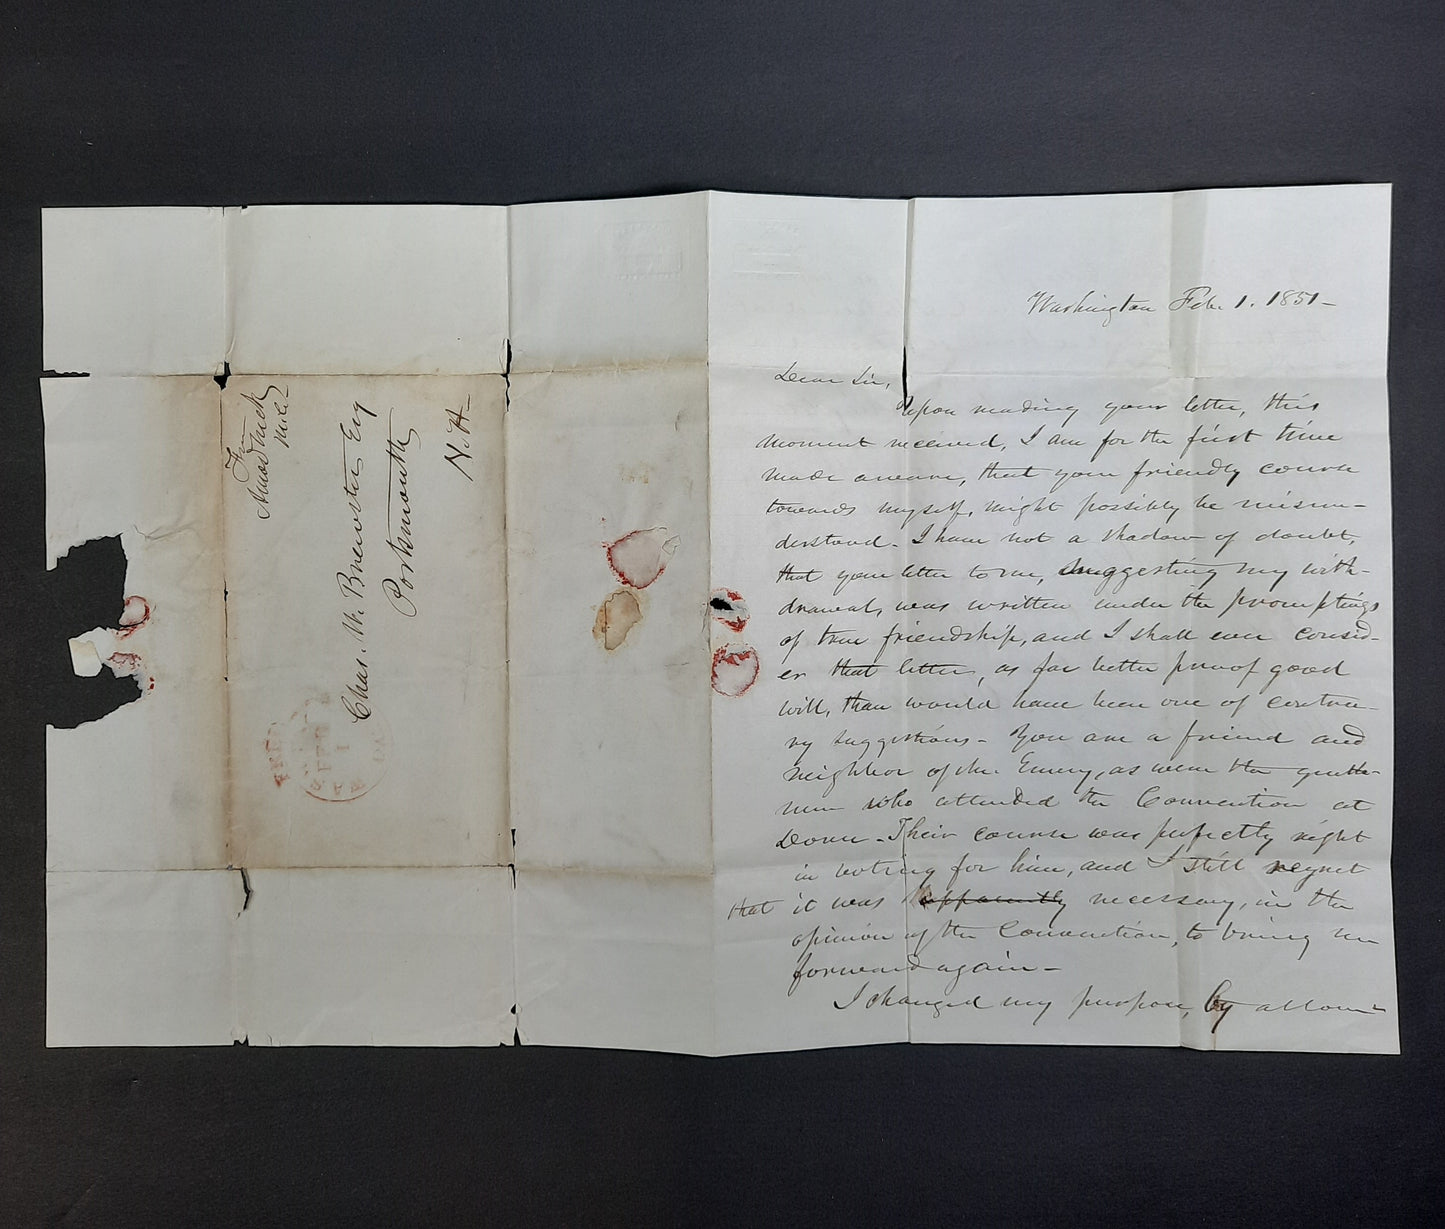 Free
Amos Tuck
M.C.
Chas. W. Brewster Esq
Portsmouth
N.H.
FREE
FEB
1
Washington Feb. 1. 1851-
Dear Sir,
Upon reading your letter, this
moment received, I am for the first time
made aware, that your friendly course
towards myself, might possibly be misun-
derstood. I have not a shadow of doubt,
that your letter to me, suggesting my with-
drawal, was written under the promptings
of true friendship, and I shall ever consid-
er that letter, as far better proof of good
will, than would have been one of contra-
ry suggestions. You are a friend and
neighbor of Mr. Emery, as were the gentle-
men who attended the Convention at
Dover. Their course was perfectly right
in voting for him, and I still regret
that it was apparently necessary, in the
opinion of the Convention, to bring me
forward again-
I changed my purpose, by allow-